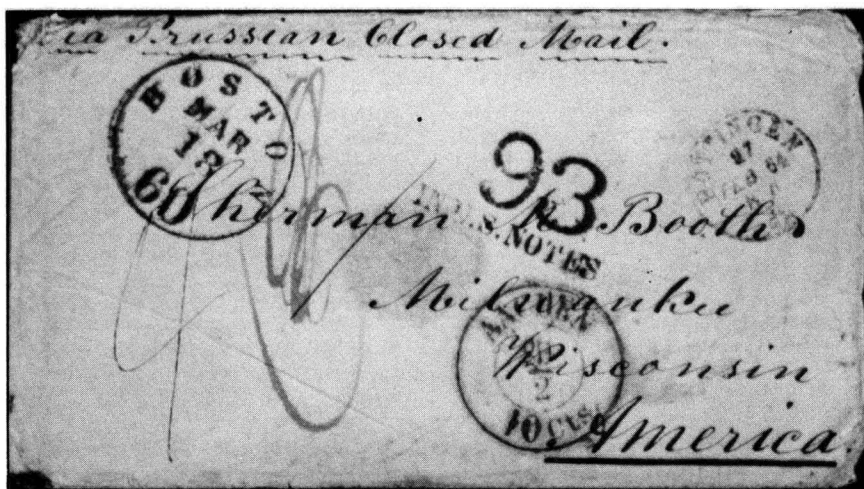 Via Prussian Closed Mail.
BOSTON
MAR
18
60
93
IN U.S. NOTES
Sherman M. Booth
Milwaukee
Wisconsin
America
AACHEN
2
10 Cts